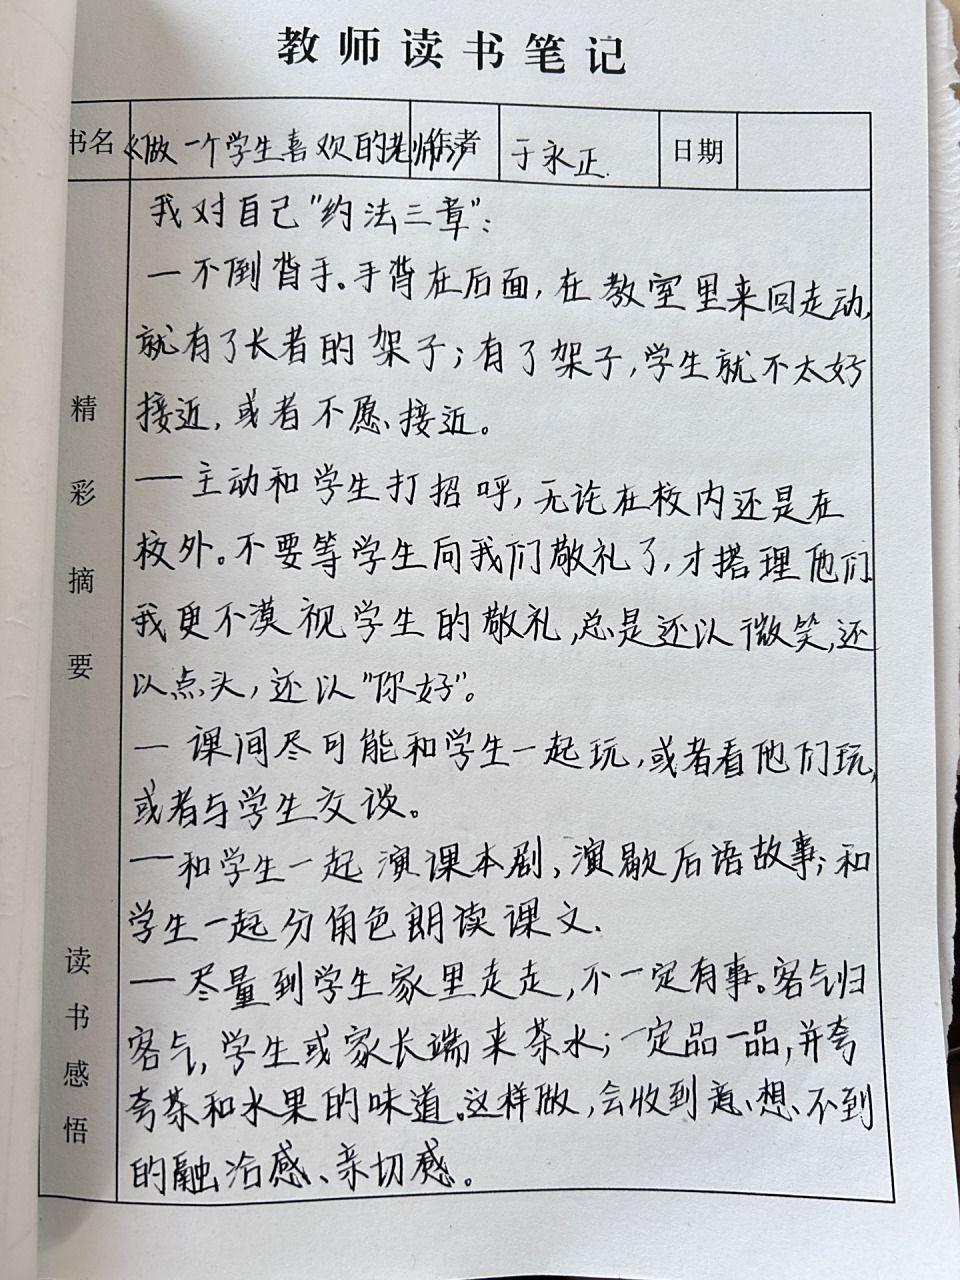 教师读书笔记
书名 《做一个学生喜欢的老师》 作者 于永正 日期
我对自己"约法三章":
一不倒背手。手背在后面,在教室里来回走动,
就有了长者的架子;有了架子,学生就不太好
接近,或者不愿接近。
一主动和学生打招呼,无论在校内还是在
校外。不要等学生向我们敬礼了,才搭理他们
我更不漠视学生的敬礼,总是还以微笑,还
以点头,还以"你好"。
一课间尽可能和学生一起玩,或者看他们玩,
或者与学生交谈。
一和学生一起演课本剧,演歇后语故事;和
学生一起分角色朗读课文.
一尽量到学生家里走走,不一定有事。客气归
客气,学生或家长端来茶水;一定品一品,并夸
夸茶和水果的味道。这样做,会收到意想不到
的融洽感、亲切感。
精彩摘要
读书感悟